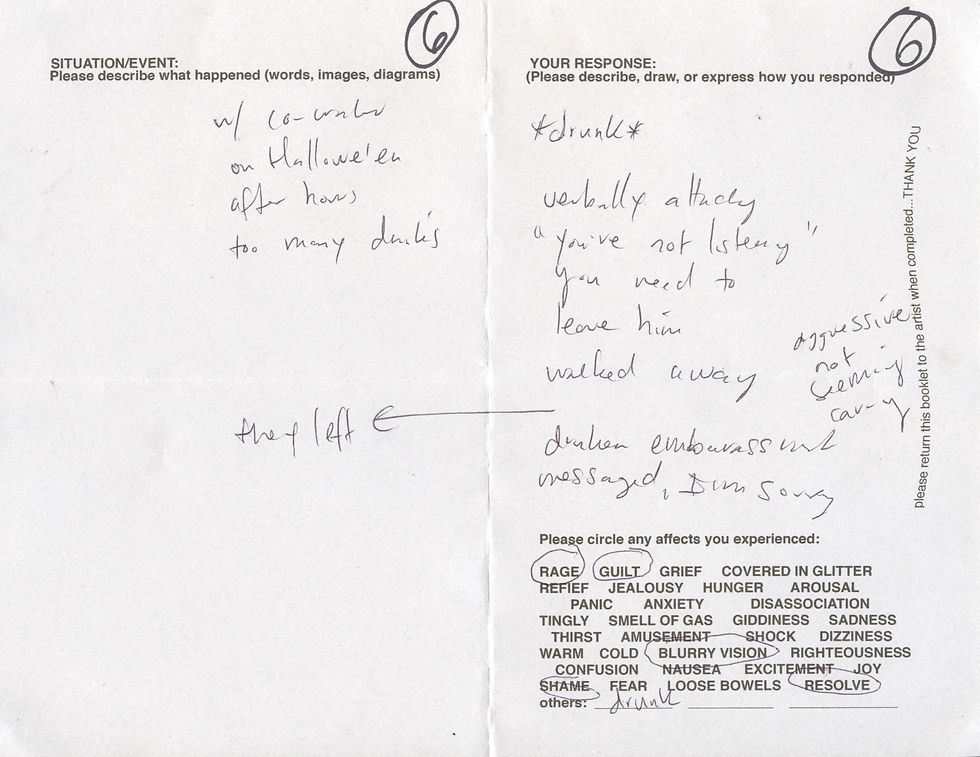 6
SITUATION/EVENT:
Please describe what happened (words, images, diagrams)
w/ co-worker
on Hallowe'en
after hours
too many drinks
they left
6
YOUR RESPONSE:
(Please describe, draw, or express how you responded)
*drunk*
verbally attacky
"you've not listeny"
you need to
leave him
walked away
aggressive
not
seeming
caring
drunken embarassment
messaged, I'm sorry
Please circle any affects you experienced:
RAGE GUILT GRIEF COVERED IN GLITTER
REFIEF JEALOUSY HUNGER AROUSAL
PANIC ANXIETY DISASSOCIATION
TINGLY SMELL OF GAS GIDDINESS SADNESS
THIRST AMUSEMENT SHOCK DIZZINESS
WARM COLD BLURRY VISION RIGHTEOUSNESS
CONFUSION NAUSEA EXCITEMENT JOY
SHAME FEAR LOOSE BOWELS RESOLVE
others: drunk
please return this booklet to the artist when completed...THANK YOU